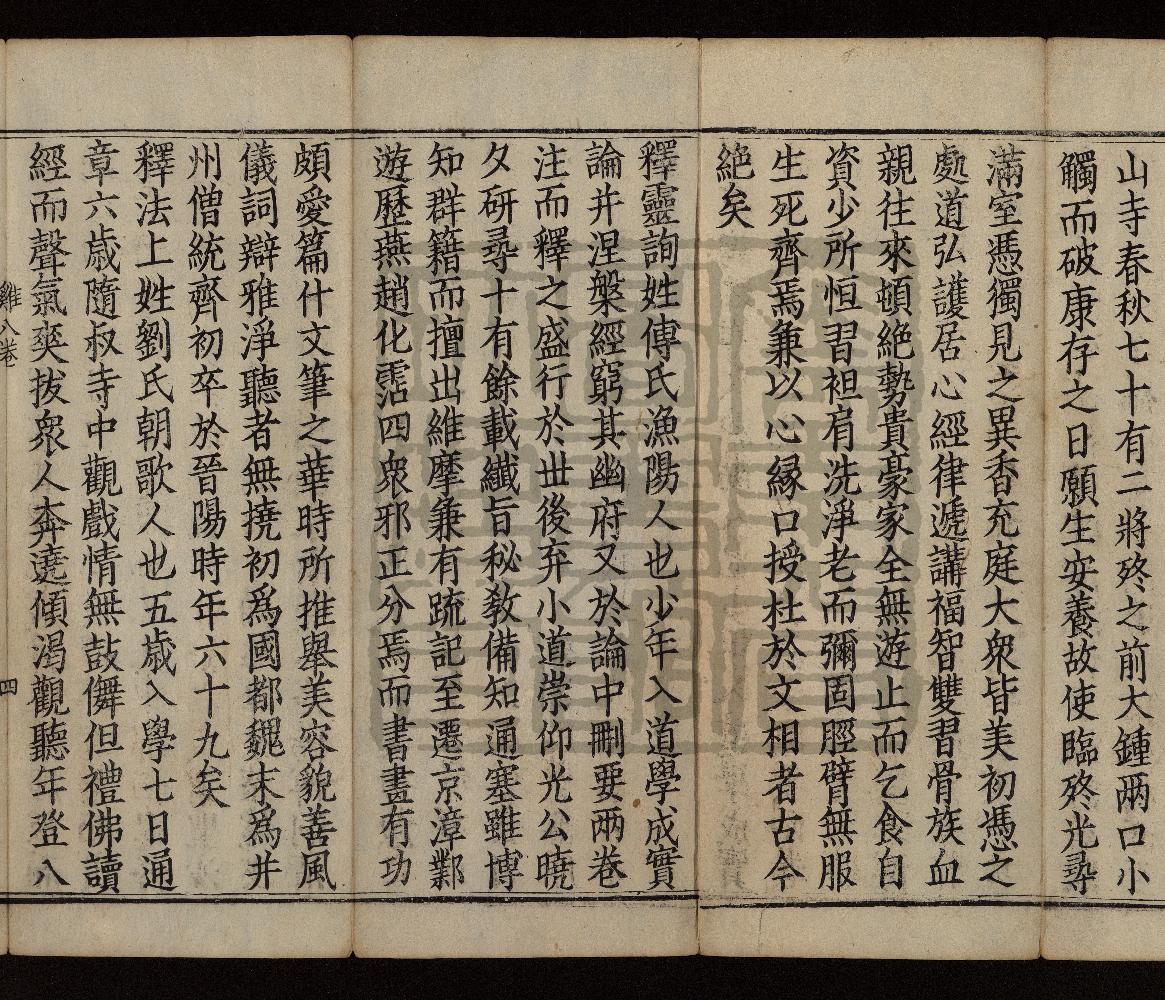 山寺春秋七十有二將終之前大鍾兩口小
觸而破康存之日願生安養故使臨終光尋
滿室憑獨見之異香充庭大衆皆美初憑之
處道弘護居心經律遞講福智雙習骨族血
親往來頓絶勢貴豪家全無遊止而乞食自
資少所恒習袒肩洗淨老而彌固脛臂無服
生死齊焉兼以心縁口授杜於文相者古今
絶矣
釋靈詢姓傅氏漁陽人也少年入道學成實
論并涅槃經窮其幽府又於論中刪要兩卷
注而釋之盛行於世後弃小道崇仰光公曉
夕研尋十有餘載纎旨秘教備知通塞雖博
知群籍而擅出維摩兼有䟽記至遷京漳鄴
遊歷燕趙化霑四衆邪正分焉而書畫有功
頗愛篇什文筆之華時所推舉美容貌善風
儀詞辯雅淨聽者無撓初爲國都魏末爲并
州僧統齊初卒於晉陽時年六十九矣
釋法上姓劉氏朝歌人也五歲入學七日通
章六歲隨叔寺中觀戲情無鼓儛但禮佛讀
經而聲氣爽拔衆人奔遶傾渴觀聽年登八
雞八卷
四